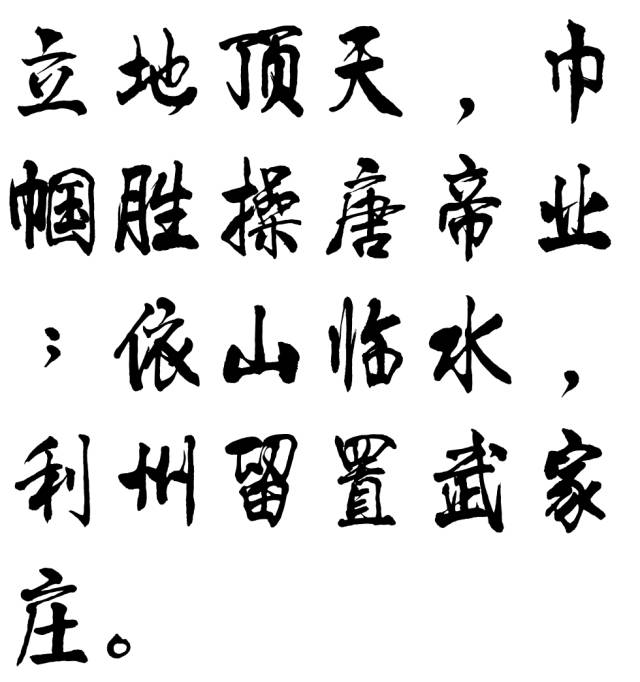 立地顶天，巾
帼胜操唐帝业
；依山临水，
利州留置武家
庄。